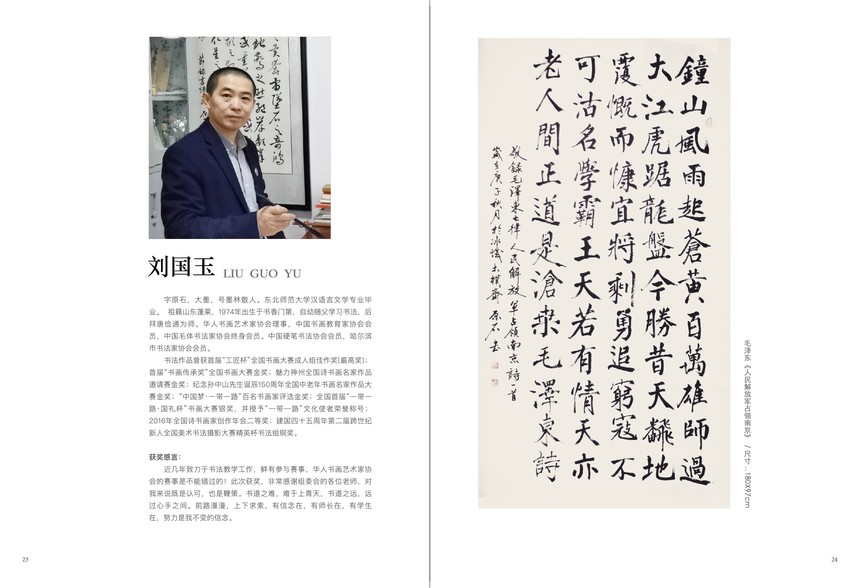 刘国玉 LIU GUO YU
字原石，大墨，号墨林散人。东北师范大学汉语言文学专业毕
业。 祖籍山东蓬莱，1974年出生于书香门第，自幼随父学习书法，后
拜唐俭通为师。华人书画艺术家协会理事，中国书画教育家协会会
员，中国毛体书法家协会终身会员。中国硬笔书法协会会员，哈尔滨
市书法家协会会员。
书法作品曾获首届“工匠杯”全国书画大赛成人组佳作奖(最高奖)；
首届“书画传承奖”全国书画大赛金奖；魅力神州全国诗书画名家作品
邀请赛金奖；纪念孙中山先生诞辰150周年全国中老年书画名家作品大
赛金奖；“中国梦·一带一路”百名书画家评选金奖；全国首届“一带一
路·国礼杯”书画大赛银奖，并授予“一带一路”文化使者荣誉称号；
2016年全国诗书画家创作年会二等奖；建国四十五周年第二届跨世纪
新人全国美术书法摄影大赛精英杯书法组铜奖。
获奖感言：
近几年致力于书法教学工作，鲜有参与赛事，华人书画艺术家协
会的赛事是不能错过的！此次获奖，非常感谢组委会的各位老师，对
我来说既是认可，也是鞭策。书道之难，难于上青天，书道之远，远
过心手之间。前路漫漫，上下求索，有信念在，有师长在，有学生
在，努力是我不变的信念。
23
鐘山風雨起蒼黃百萬雄師過
大江虎踞龍盤今勝昔天飜地
覆慨而慷宜將剩勇追窮寇不
可沽名學霸王天若有情天亦
老人間正道是滄桒毛澤東詩
敬錄毛澤東七律人民解放軍占領南京詩一首
歲在庚子秋月於冰城大樸齋原石書
毛泽东《人民解放军占领南京》 / 尺寸：180X97cm
24